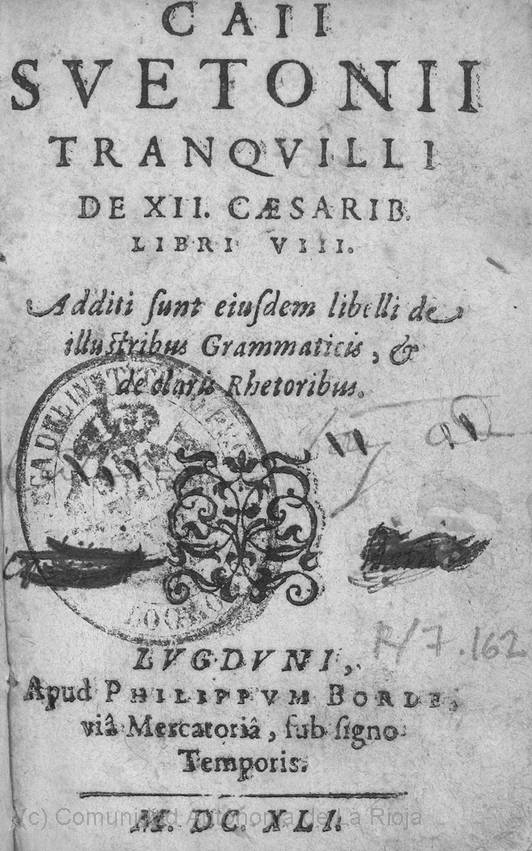 CAII
SVETONII
TRANQVILLI
DE XII. CÆSARIB.
LIBRI VIII.
Additi ſunt eiuſdem libelli de
illuſtribus Grammaticis, &
de claris Rhetoribus.
LVGDVNI,
Apud PHILIPPVM BORDE,
viâ Mercatoriâ, ſub ſigno
Temporis.
R/7.162
(c) Comunidad Autónoma de La Rioja
M. DC. XLI.